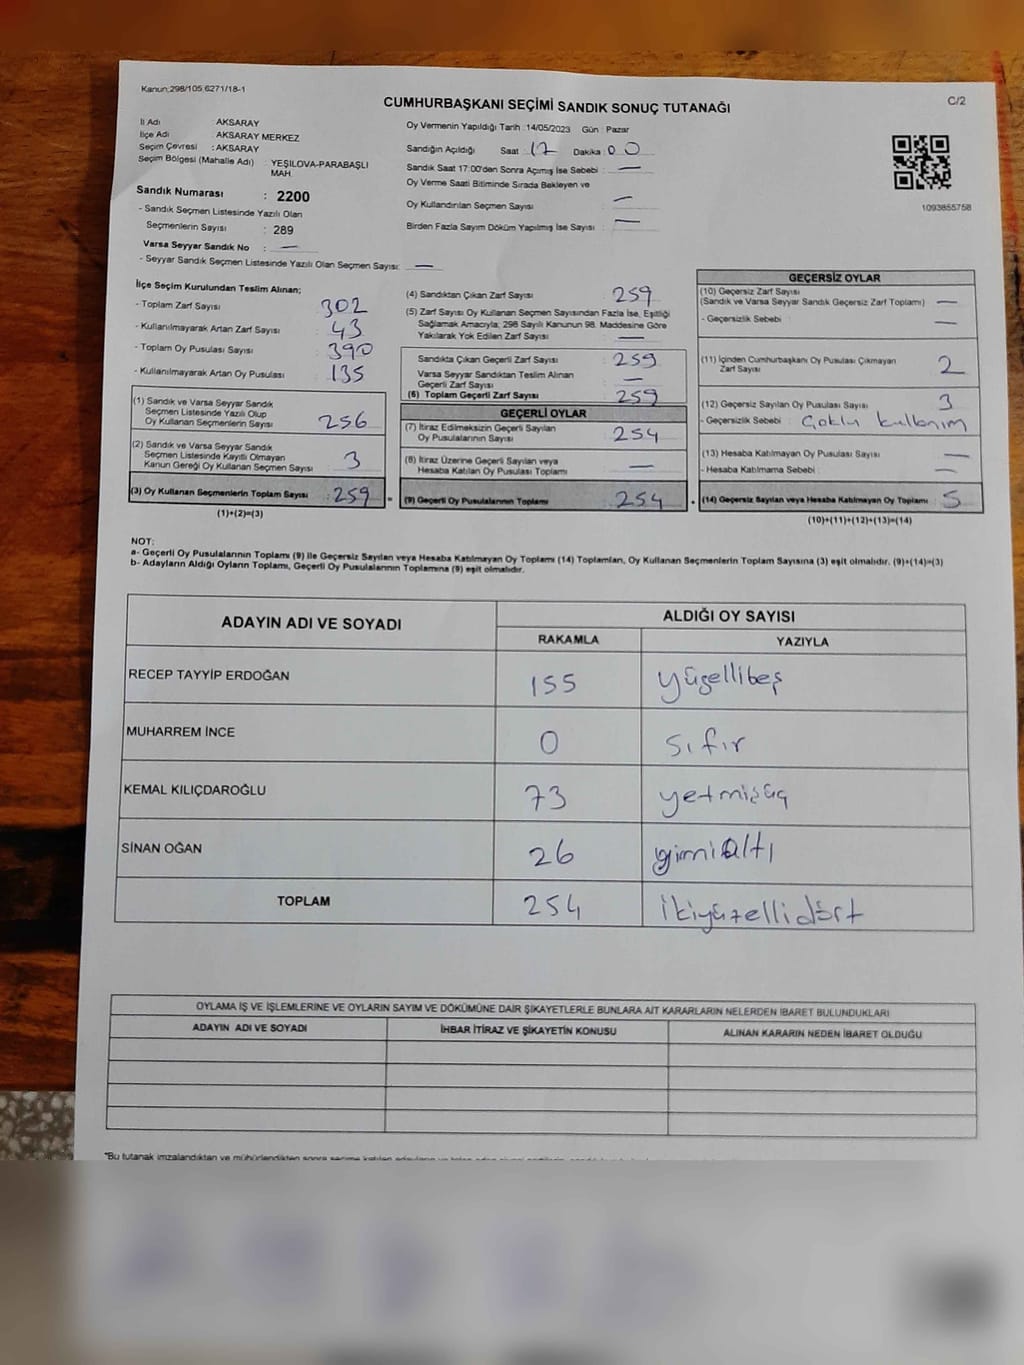 Kanun:298/105,6271/18-1
C/2
CUMHURBAŞKANI SEÇİMİ SANDIK SONUÇ TUTANAĞI
İl Adı : AKSARAY
İlçe Adı : AKSARAY MERKEZ
Seçim Çevresi : AKSARAY
Seçim Bölgesi (Mahalle Adı) : YEŞİLOVA-PARABAŞLI MAH.
Sandık Numarası : 2200
- Sandık Seçmen Listesinde Yazılı Olan
Seçmenlerin Sayısı : 289
Varsa Seyyar Sandık No : —
- Seyyar Sandık Seçmen Listesinde Yazılı Olan Seçmen Sayısı: —
Oy Vermenin Yapıldığı Tarih :14/05/2023 Gün : Pazar
Sandığın Açıldığı Saat : 17 Dakika : 00
Sandık Saat 17:00'den Sonra Açımış İse Sebebi : —
Oy Verme Saati Bitiminde Sırada Bekleyen ve
Oy Kullandırılan Seçmen Sayısı : —
Birden Fazla Sayım Döküm Yapılmış İse Sayısı : —
1093855758
İlçe Seçim Kurulundan Teslim Alınan;
- Toplam Zarf Sayısı : 302
- Kullanılmayarak Artan Zarf Sayısı : 43
- Toplam Oy Pusulası Sayısı : 390
- Kullanılmayarak Artan Oy Pusulası : 135
(1) Sandık ve Varsa Seyyar Sandık
Seçmen Listesinde Yazılı Olup
Oy Kullanan Seçmenlerin Sayısı : 256
(2) Sandık ve Varsa Seyyar Sandık
Seçmen Listesinde Kayıtlı Olmayan
Kanun Gereği Oy Kullanan Seçmen Sayısı : 3
(3) Oy Kullanan Seçmenlerin Toplam Sayısı : 259
(1)+(2)=(3)
(4) Sandıktan Çıkan Zarf Sayısı : 259
(5) Zarf Sayısı Oy Kullanan Seçmen Sayısından Fazla İse, Eşitliği
Sağlamak Amacıyla; 298 Sayılı Kanunun 98. Maddesine Göre
Yakılarak Yok Edilen Zarf Sayısı : —
Sandıkta Çıkan Geçerli Zarf Sayısı : 259
Varsa Seyyar Sandıktan Teslim Alınan
Geçerli Zarf Sayısı : —
(6) Toplam Geçerli Zarf Sayısı : 259
GEÇERLİ OYLAR
(7) İtiraz Edilmeksizin Geçerli Sayılan
Oy Pusulalarının Sayısı : 254
(8) İtiraz Üzerine Geçerli Sayılan veya
Hesaba Katılan Oy Pusulası Toplamı : —
(9) Geçerli Oy Pusulalarının Toplamı : 254
GEÇERSİZ OYLAR
(10) Geçersiz Zarf Sayısı
(Sandık ve Varsa Seyyar Sandık Geçersiz Zarf Toplamı) : —
- Geçersizlik Sebebi : —
(11) İçinden Cumhurbaşkanı Oy Pusulası Çıkmayan
Zarf Sayısı : 2
(12) Geçersiz Sayılan Oy Pusulası Sayısı : 3
- Geçersizlik Sebebi : Çoklu kullanım
(13) Hesaba Katılmayan Oy Pusulası Sayısı : —
- Hesaba Katılmama Sebebi : —
(14) Geçersiz Sayılan veya Hesaba Katılmayan Oy Toplamı : 5
(10)+(11)+(12)+(13)=(14)
NOT:
a- Geçerli Oy Pusulalarının Toplamı (9) ile Geçersiz Sayılan veya Hesaba Katılmayan Oy Toplamı (14) Toplamları, Oy Kullanan Seçmenlerin Toplam Sayısına (3) eşit olmalıdır. (9)+(14)=(3)
b- Adayların Aldığı Oyların Toplamı, Geçerli Oy Pusulalarının Toplamına (9) eşit olmalıdır.
ADAYIN ADI VE SOYADI
ALDIĞI OY SAYISI
RAKAMLA YAZIYLA
RECEP TAYYİP ERDOĞAN 155 yüzellibeş
MUHARREM İNCE 0 sıfır
KEMAL KILIÇDAROĞLU 73 yetmişüç
SİNAN OĞAN 26 yirmialtı
TOPLAM 254 ikiyüzellidört
OYLAMA İŞ VE İŞLEMLERİNE VE OYLARIN SAYIM VE DÖKÜMÜNE DAİR ŞİKAYETLERLE BUNLARA AİT KARARLARIN NELERDEN İBARET BULUNDUKLARI
ADAYIN ADI VE SOYADI İHBAR İTİRAZ VE ŞİKAYETİN KONUSU ALINAN KARARIN NEDEN İBARET OLDUĞU
*Bu tutanak imzalandıktan ve mühürlendikten sonra seçime katılan